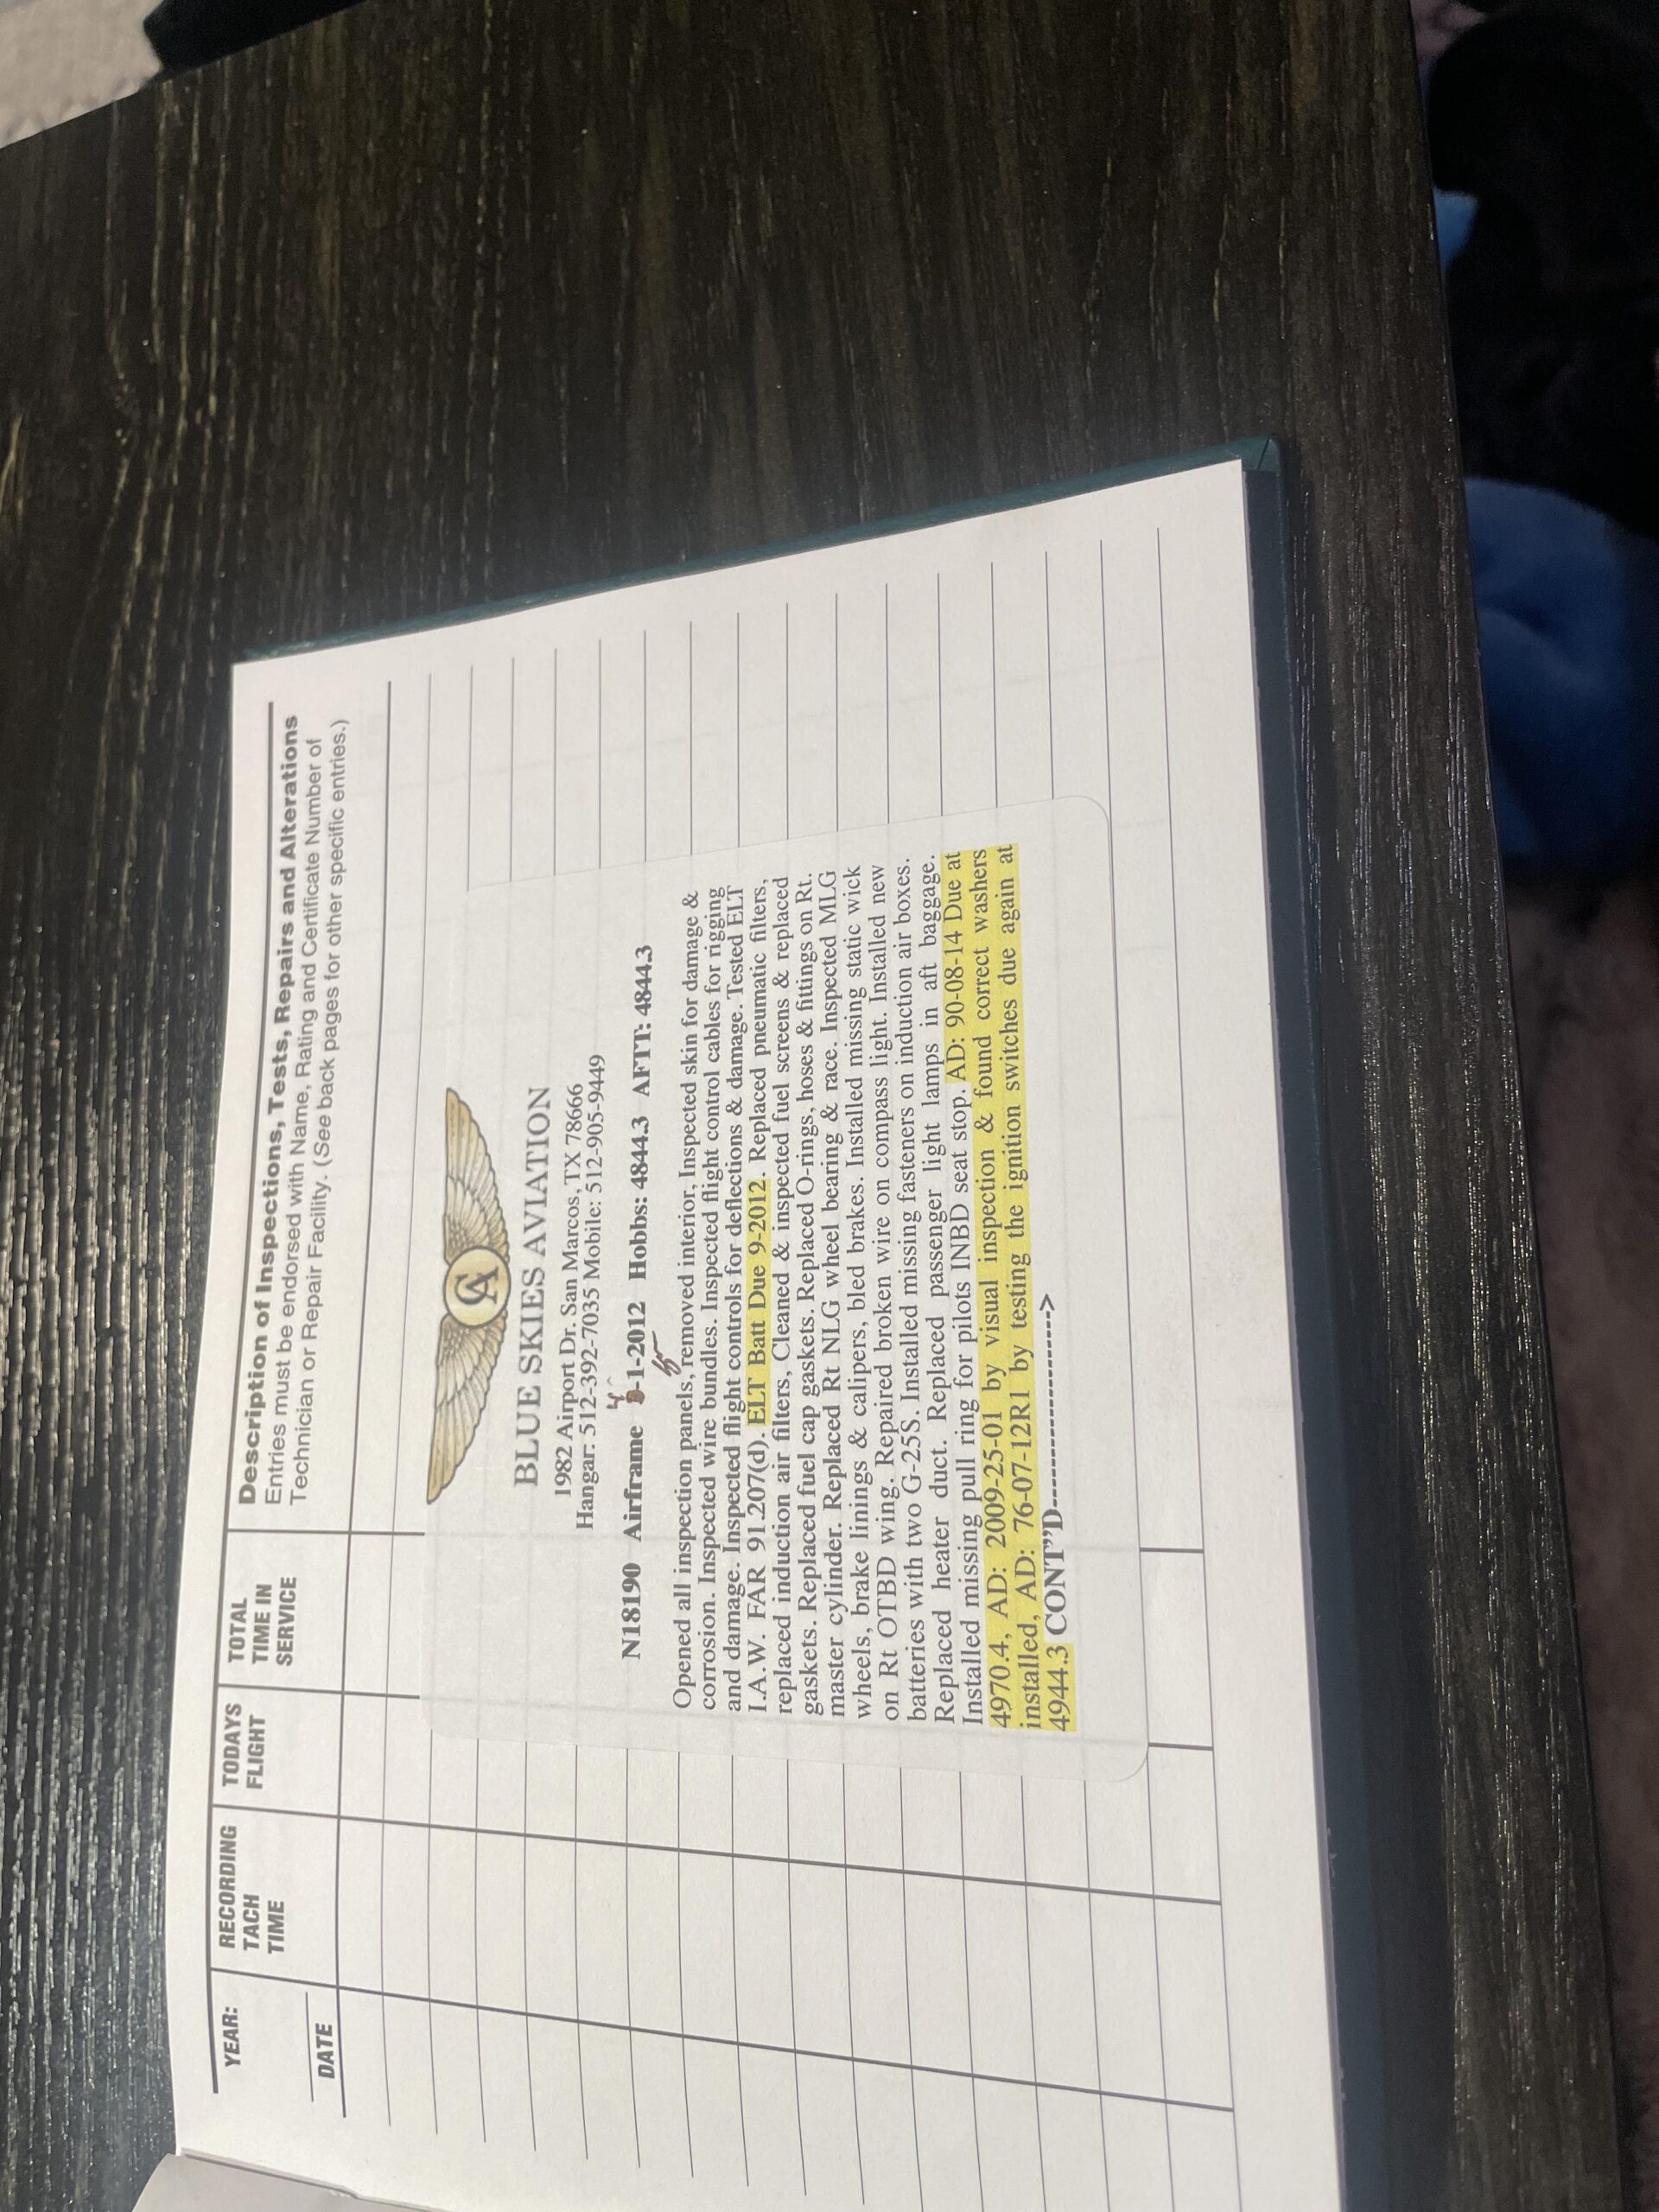 YEAR:
DATE
RECORDING
TACH
TIME
TODAYS
FLIGHT
TOTAL
TIME IN
SERVICE
Description of Inspections, Tests, Repairs and Alterations
Entries must be endorsed with Name, Rating and Certificate Number of
Technician or Repair Facility. (See back pages for other specific entries.)
CA
BLUE SKIES AVIATION
1982 Airport Dr. San Marcos, TX 78666
Hangar: 512-392-7035 Mobile: 512-905-9449
4
N18190 Airframe -1-2012 Hobbs: 4844.3 AFTT: 4844.3
Opened all inspection panels, removed interior, Inspected skin for damage &
corrosion. Inspected wire bundles. Inspected flight control cables for rigging
and damage. Inspected flight controls for deflections & damage. Tested ELT
I.A.W. FAR 91.207(d). ELT Batt Due 9-2012. Replaced pneumatic filters,
replaced induction air filters, Cleaned & inspected fuel screens & replaced
gaskets. Replaced fuel cap gaskets. Replaced O-rings, hoses & fittings on Rt.
master cylinder. Replaced Rt NLG wheel bearing & race. Inspected MLG
wheels, brake linings & calipers, bled brakes. Installed missing static wick
on Rt OTBD wing. Repaired broken wire on compass light. Installed new
batteries with two G-25S. Installed missing fasteners on induction air boxes.
Replaced heater duct. Replaced passenger light lamps in aft baggage.
Installed missing pull ring for pilots INBD seat stop. AD: 90-08-14 Due at
4970.4, AD: 2009-25-01 by visual inspection & found correct washers
installed, AD: 76-07-12R1 by testing the ignition switches due again at
4944.3 CONT"D---------------------->